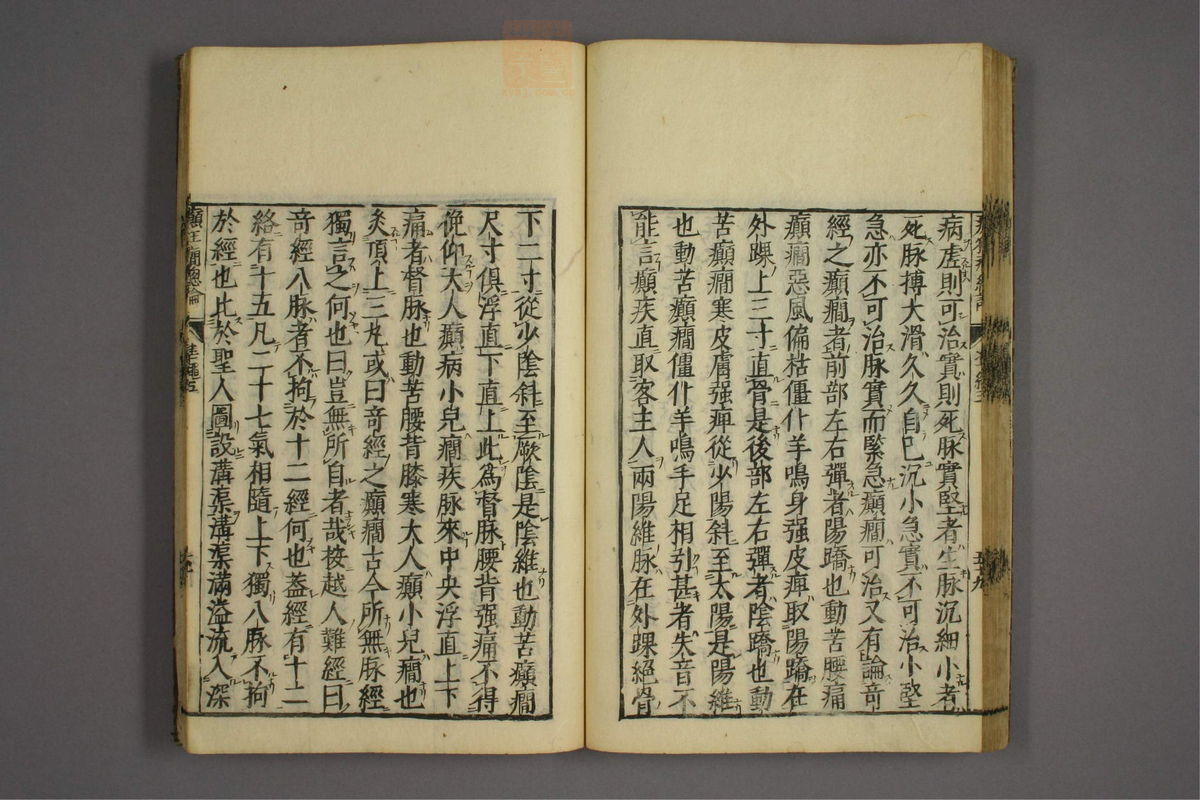 病虚則可治實則死脉實堅者生脉沉細小者
死脉搏大滑久久自已沉小急實不可治小堅
急亦不可治脉實而緊急癲癇可治又有論竒
經之癲癇者前部左右彈者陽蹻也動苦腰痛
癲癇惡風偏枯僵仆羊鳴身强皮痺取陽蹻在
外踝上三寸直骨是後部左右彈者陰蹻也動
苦癲癇寒皮膚强痺從少陽斜至太陽是陽維
也動苦癲癇僵仆羊鳴手足相引甚者失音不
能言癲疾直取客主人兩陽維脉在外踝絕骨
下二寸從少陰斜至厥陰是陰維也動苦癲癇
尺寸俱浮直下直上此為督脉腰背强痛不得
俛仰大人癲病小兒癇疾脉來中央浮直上下
痛者督脉也動苦腰背膝寒大人癲小兒癇也
灸頂上三丸或曰竒經之癲癇古今所無脉經
獨言之何也曰豈無所自者哉按越人難經曰
竒經八脉者不拘於十二經何也盖經有十二
絡有十五凡二十七氣相隨上下獨八脉不拘
於經也比於聖人圖設溝渠溝渠滿溢流入深
癲狂癇總論